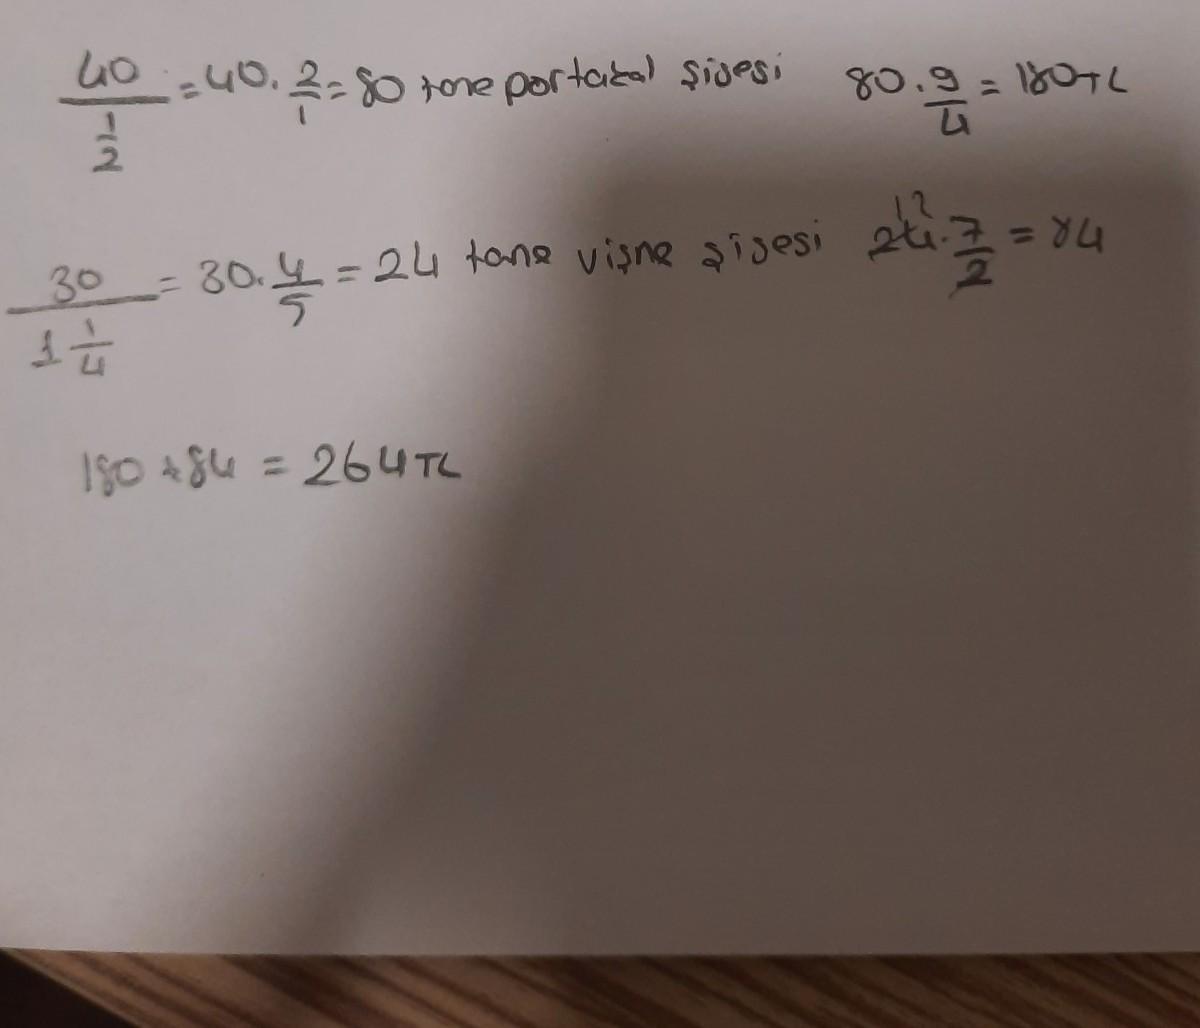 40/(1/2) = 40 . 2/1 = 80 tane portakal şişesi 80 . 9/4 = 180 TL
30/(1 1/4) = 30 . 4/5 = 24 tane vişne şişesi 24 12 . 7/2 = 84
180 + 84 = 264 TL